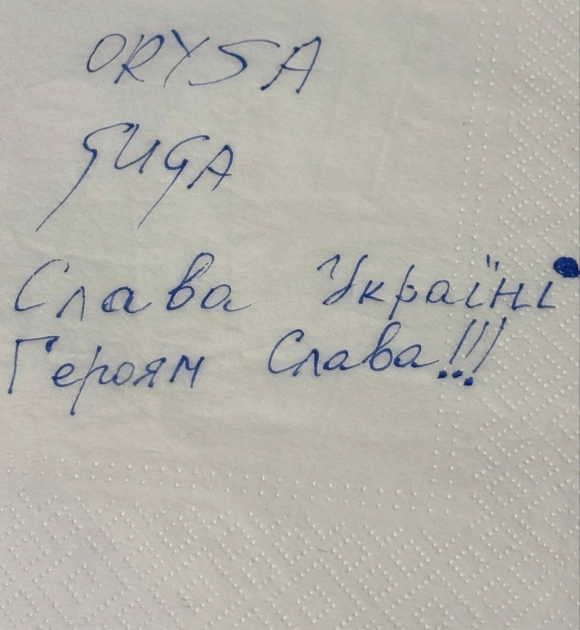 ORYSA
GUGA
Слава Україні
Героям Слава!!!